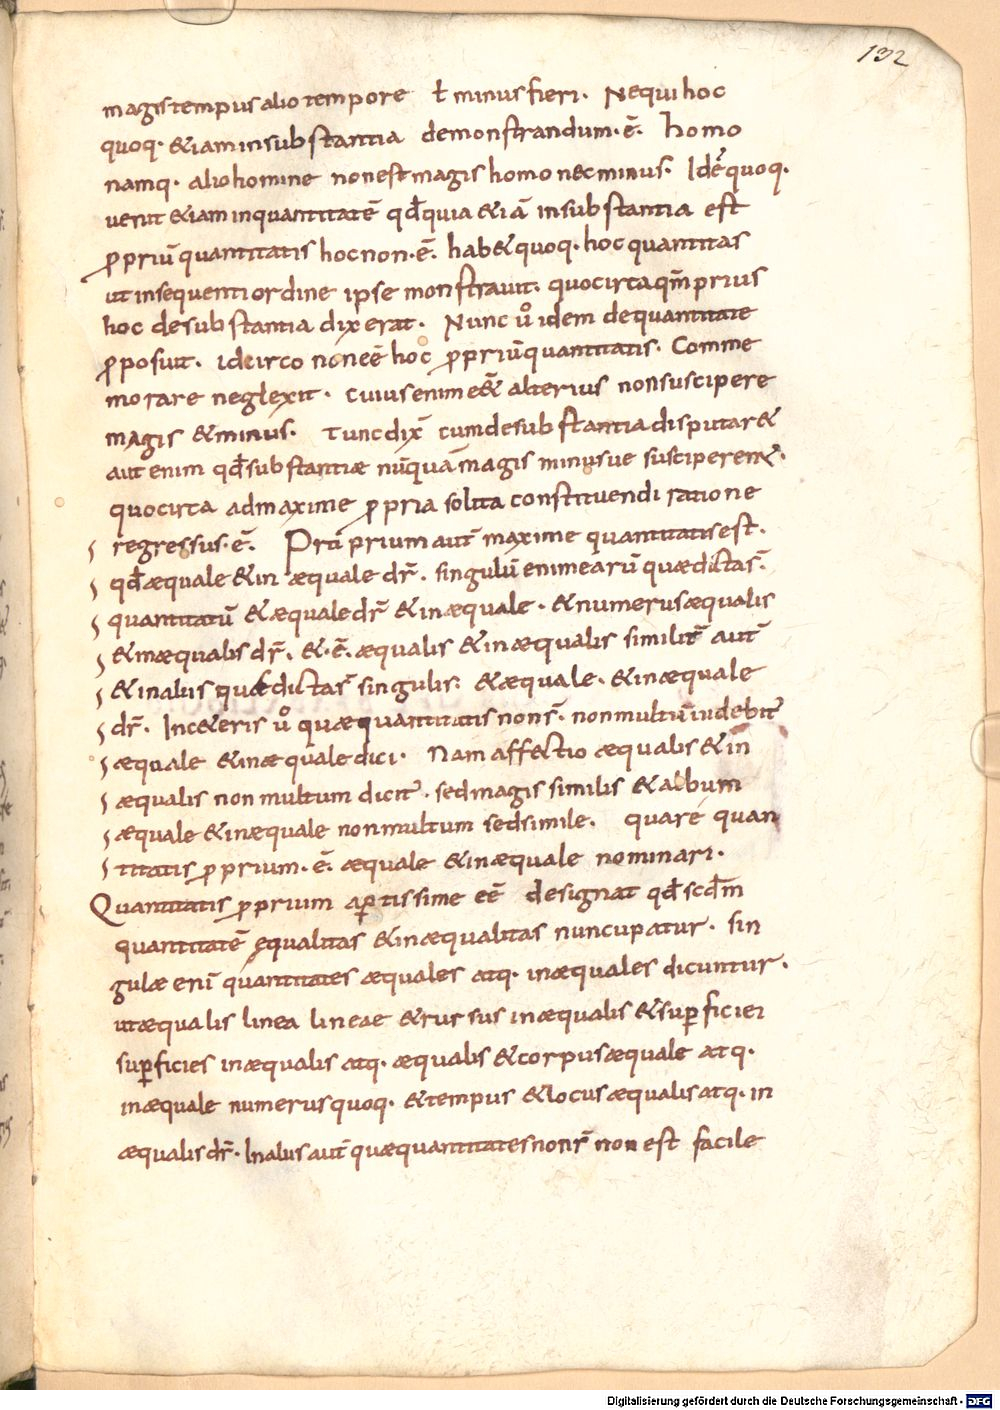 132
magis tempus alio tempore ł minus fieri. Nequi hoc
quoq. &iam in substantia demonstrandum.ē. homo
namq. alio homine non est magis homo nec minus. Idē quoq.
uenit &iam in quantitatē qđ quia &iā in substantia est
ppriū quantitatis hoc non.ē. hab& quoq. hoc quantitas
ut insequenti ordine ipse monstrauit. quocirca qm̄ prius
hoc de substantia dixerat. Nunc ůo idem de quantitate
pposuit. idcirco non eē hoc ppriū quantitatis. Comme
morare neglexit. cuius enim e&̄ alterius non suscipere
magis & minus. Tunc dix̄ cum de substantia disputar&
aut enim qđ substantiæ nūquā magis minusue susciperent̄.
quocirca ad maxime ppria solita constituendi ratione
regressus.ē. Prā prium aut̄ maxime quantitatis est.
qđ æquale & in æquale dr̄. singulū enim earū quæ dictas̄.
quantitatū & æquale dr̄ & inæquale. & numerus æqualis
& inæqualis dr̄. &.ē. æqualis & inæqualis similit̄ aut̄
& in aliis quæ dictas̄ singulis. & æquale. & inæquale
dr̄. In c&eris ůo quæ quantitatis nons̄. non multū uidebit̄
æquale & inæquale dici. Nam affectio æqualis & in
æqualis non multum dicit̄. sed magis similis & album
æquale & inæquale non multum sed simile. quare quan
titatis pprium.ē. æquale & inæquale nominari.
Quantitatis pprium aptissime eē designat qđ scđm
quantitatē ęqualitas & inæqualitas nuncupatur. sin
gulæ enī quantitates æquales atq. inæquales dicuntur.
ut æqualis linea lineae & rursus inæqualis & supficiei
supficies inæqualis atq. æqualis & corpus æquale atq.
inæquale numerus quoq. & tempus & locus æqualis atq. in
æqualis dr̄. In aliis aut̄ quæ quantitates nons̄ non est facile
Digitalisierung gefördert durch die Deutsche Forschungsgemeinschaft - DFG